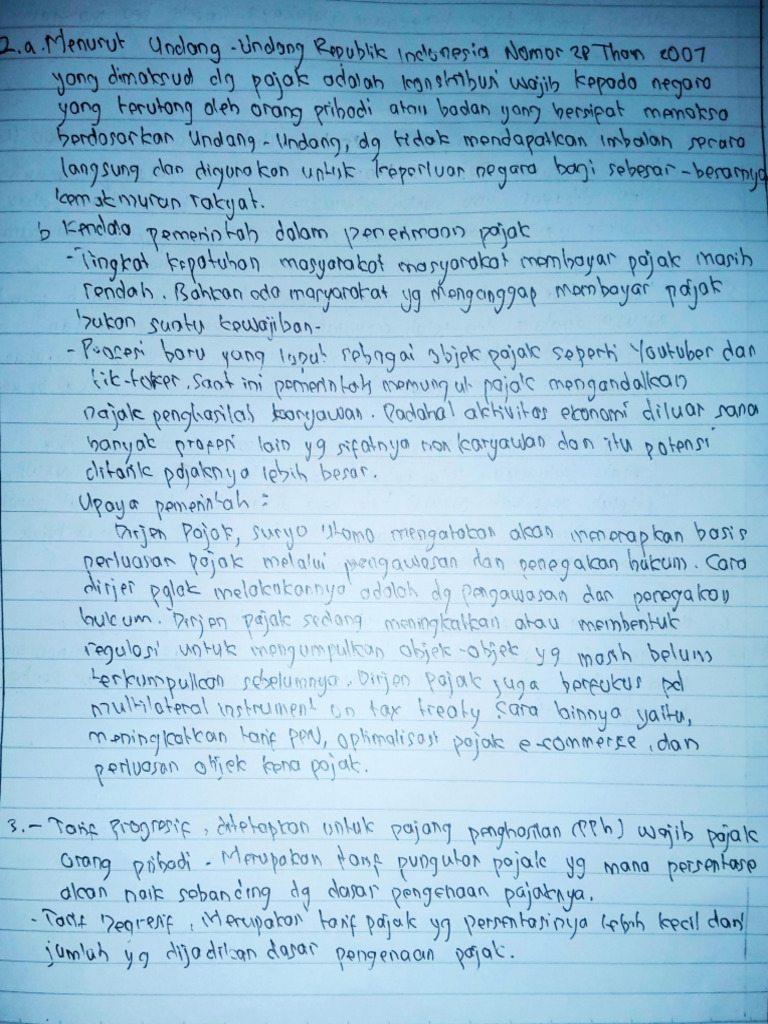 2.a. Menurut Undang-Undang Republik Indonesia Nomor 28 Than 2007
yang dimaksud dg pajak adalah konstribusi wajib kepada negara
yang terutang oleh orang pribadi atau badan yang bersifat memaksa
berdasarkan Undang-Undang, dg tidak mendapatkan imbalan secara
langsung dan digunakan untuk keperluan negara bagi sebesar-besarnya
kemakmuran rakyat.
b Kendala pemerintah dalam penerimaan pajak
- Tingkat kepatuhan masyarakat masyarakat membayar pajak masih
rendah. Bahkan ada masyarakat yg menganggap membayar pajak
bukan suatu kewajiban-
- Profesi baru yang luput sebagai objek pajak seperti Youtuber dan
tik-toker. Saat ini pemerintah memungut pajak mengandalkan
pajak penghasilan karyawan. Padahal aktivitas ekonomi diluar sana
banyak profesi lain yg sifatnya non karyawan dan itu potensi
ditarik pajaknya lebih besar.
Upaya pemerintah :
Dirjen Pajak, suryo utomo mengatakan akan menerapkan basis
perluasan pajak melalui pengawasan dan penegakan hukum. Cara
dirjen pajak melakukannya adalah dg pengawasan dan penegakan
hukum. Dirjen pajak sedang meningkatkan atau membentuk
regulasi untuk mengumpulkan objek-objek yg masih belum
terkumpulkan sebelumnya. Dirjen pajak juga berfokus pd
multilateral instrument on tax treaty. Cara lainnya yaitu,
meningkatkan tarif PPN, optimalisasi pajak e-commerse, dan
perluasan objek kena pajak.
3. - Tarif Progresif, ditetapkan untuk pajang penghasilan (PPh) wajib pajak
orang pribadi - Merupakan tarif pungutan pajak yg mana persentase
akan naik sebanding dg dasar pengenaan pajaknya.
- Tarif Degresif, Merupakan tarif pajak yg persentasinya lebih kecil dari
jumlah yg dijadikan dasar pengenaan pajak.